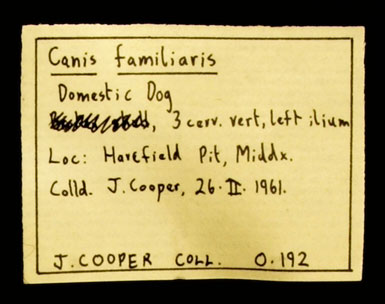 Canis familiaris
Domestic Dog
, 3 cerv. vert, left ilium
Loc: Harefield Pit, Middx.
Colld. J. Cooper, 26. II. 1961.
J. COOPER COLL. O.192